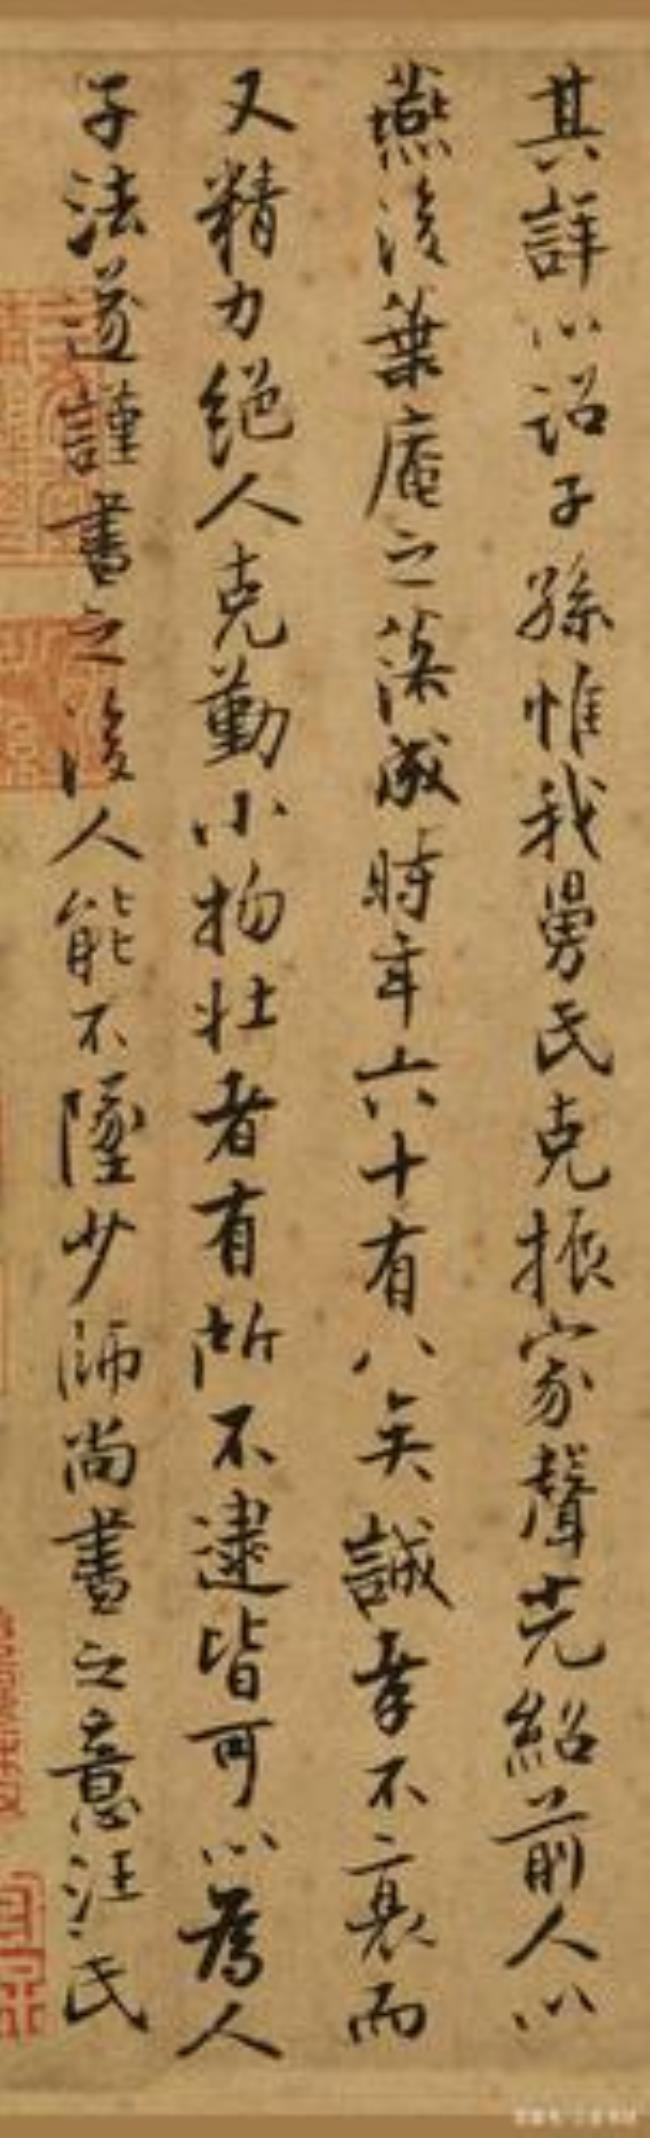 其詳以詔子孫惟我舅氏克振家聲光紹前人以
燕後葉庵之落成時年六十有八矣誠孝不衰而
又精力絕人克勤小物壯者有所不逮皆可以為人
子法遂謹書之後人能不墬少師尚書之意汪氏